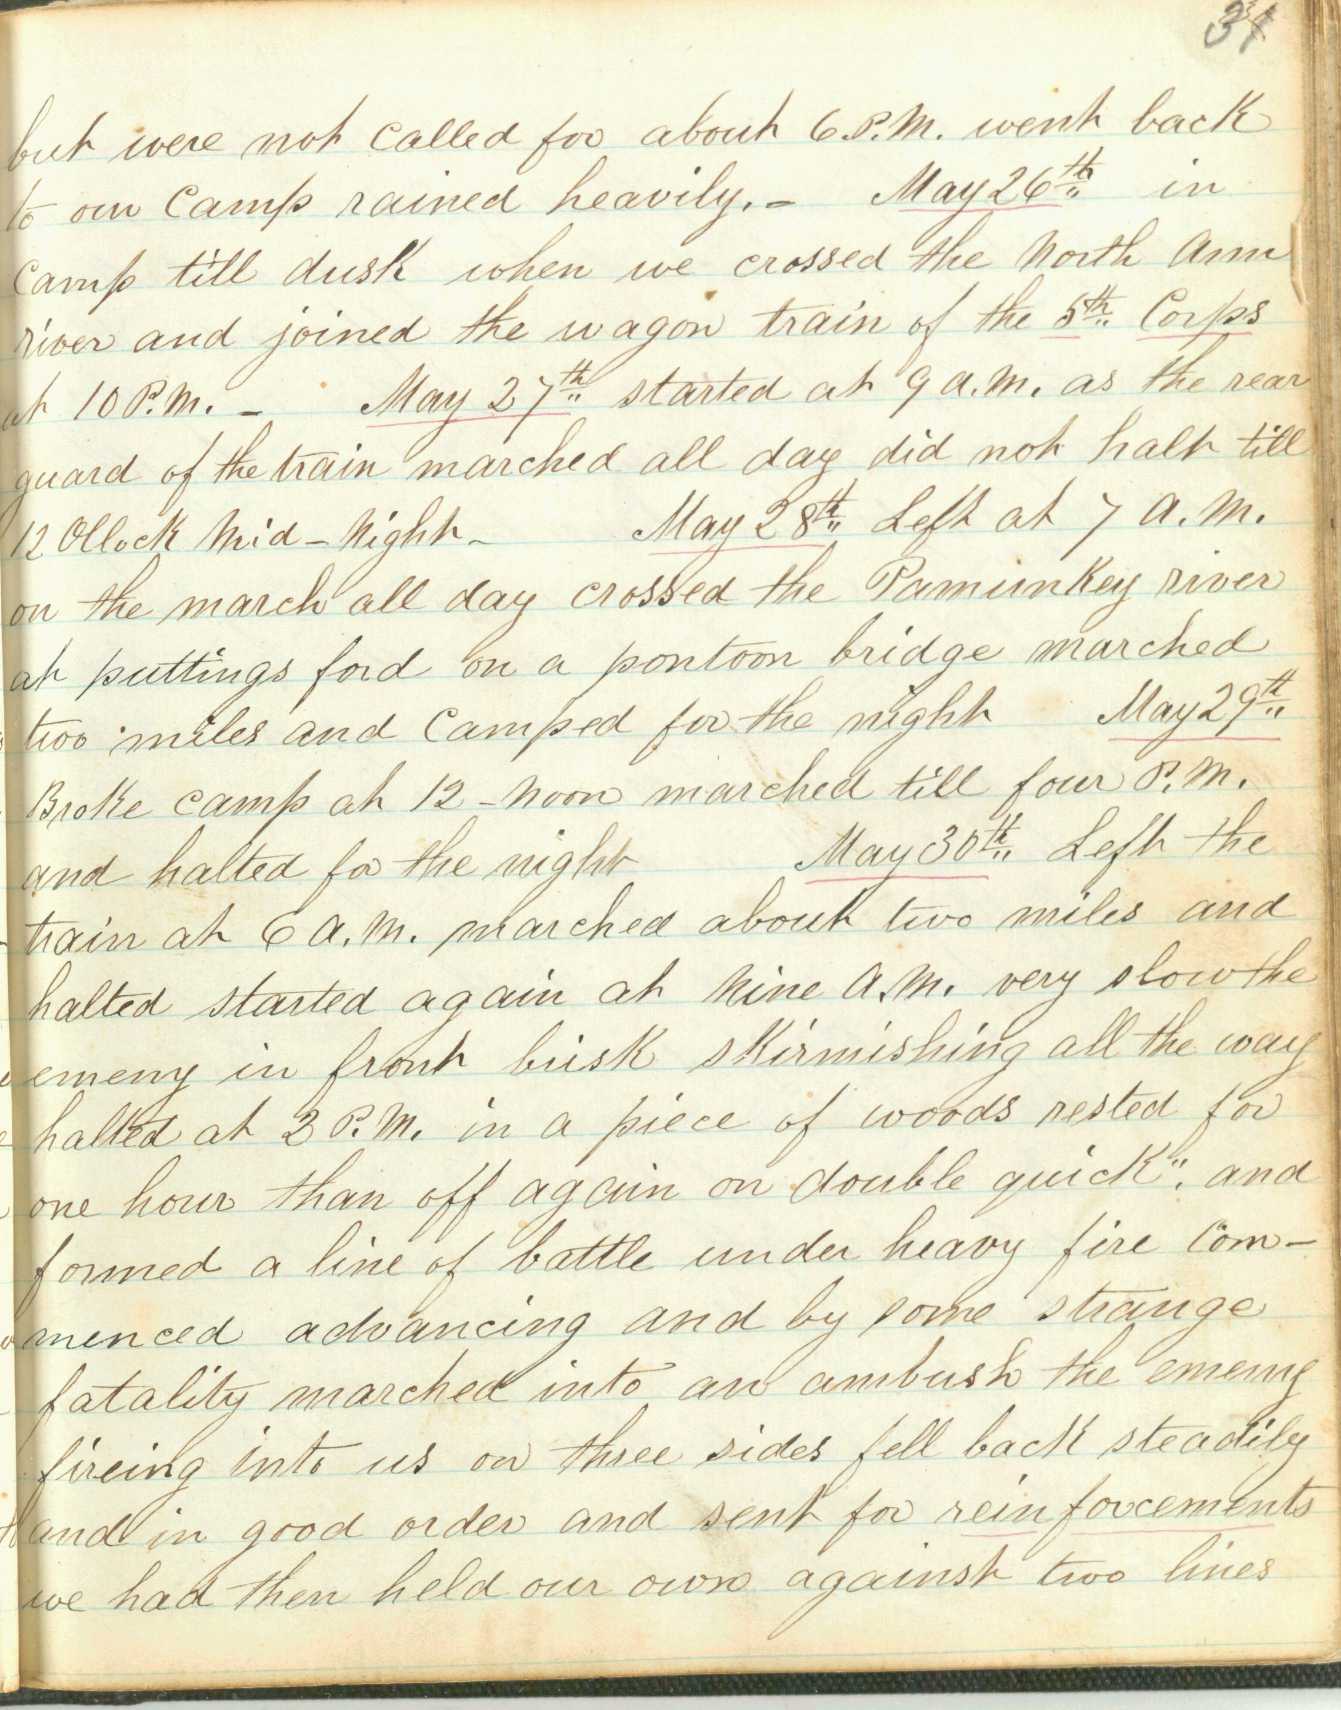 31
but were not called for about 6 P.M. went back
to our Camp rained heavily. – May 26th in
Camp till dusk when we crossed the North Ann
river and joined the wagon train of the 5th Corps
at 10 P.M. – May 27th started at 9 A.M. as the rear
guard of the train marched all day did not halt till
12 Ollock Mid-Night – May 28th Left at 7 A.M.
on the march all day crossed the Pamunkey river
at puttings ford on a pontoon bridge marched
two miles and Camped for the night May 29th
Broke camp at 12 – Noon marched till four P.M.
and halted for the night May 30th Left the
train at 6 A.M. marched about two miles and
halted started again at Nine A.M. very slow the
emeny in front brisk skirmishing all the way
halted at 3 P.M. in a piece of woods rested for
one hour than off again on double quick". and
formed a line of battle under heavy fire Com–
menced advancing and by some strange
fatality marched into an ambush the emeny
fireing into us on three sides fell back steadily
and in good order and sent for reinforcements
we had then held our own against two lines